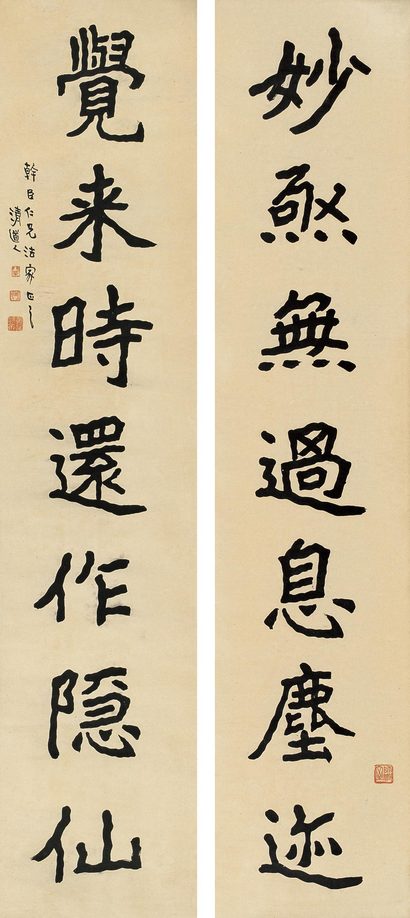 妙敔無過息塵迹
覺来時還作隐仙
幹臣仁兄法家正之
清道人